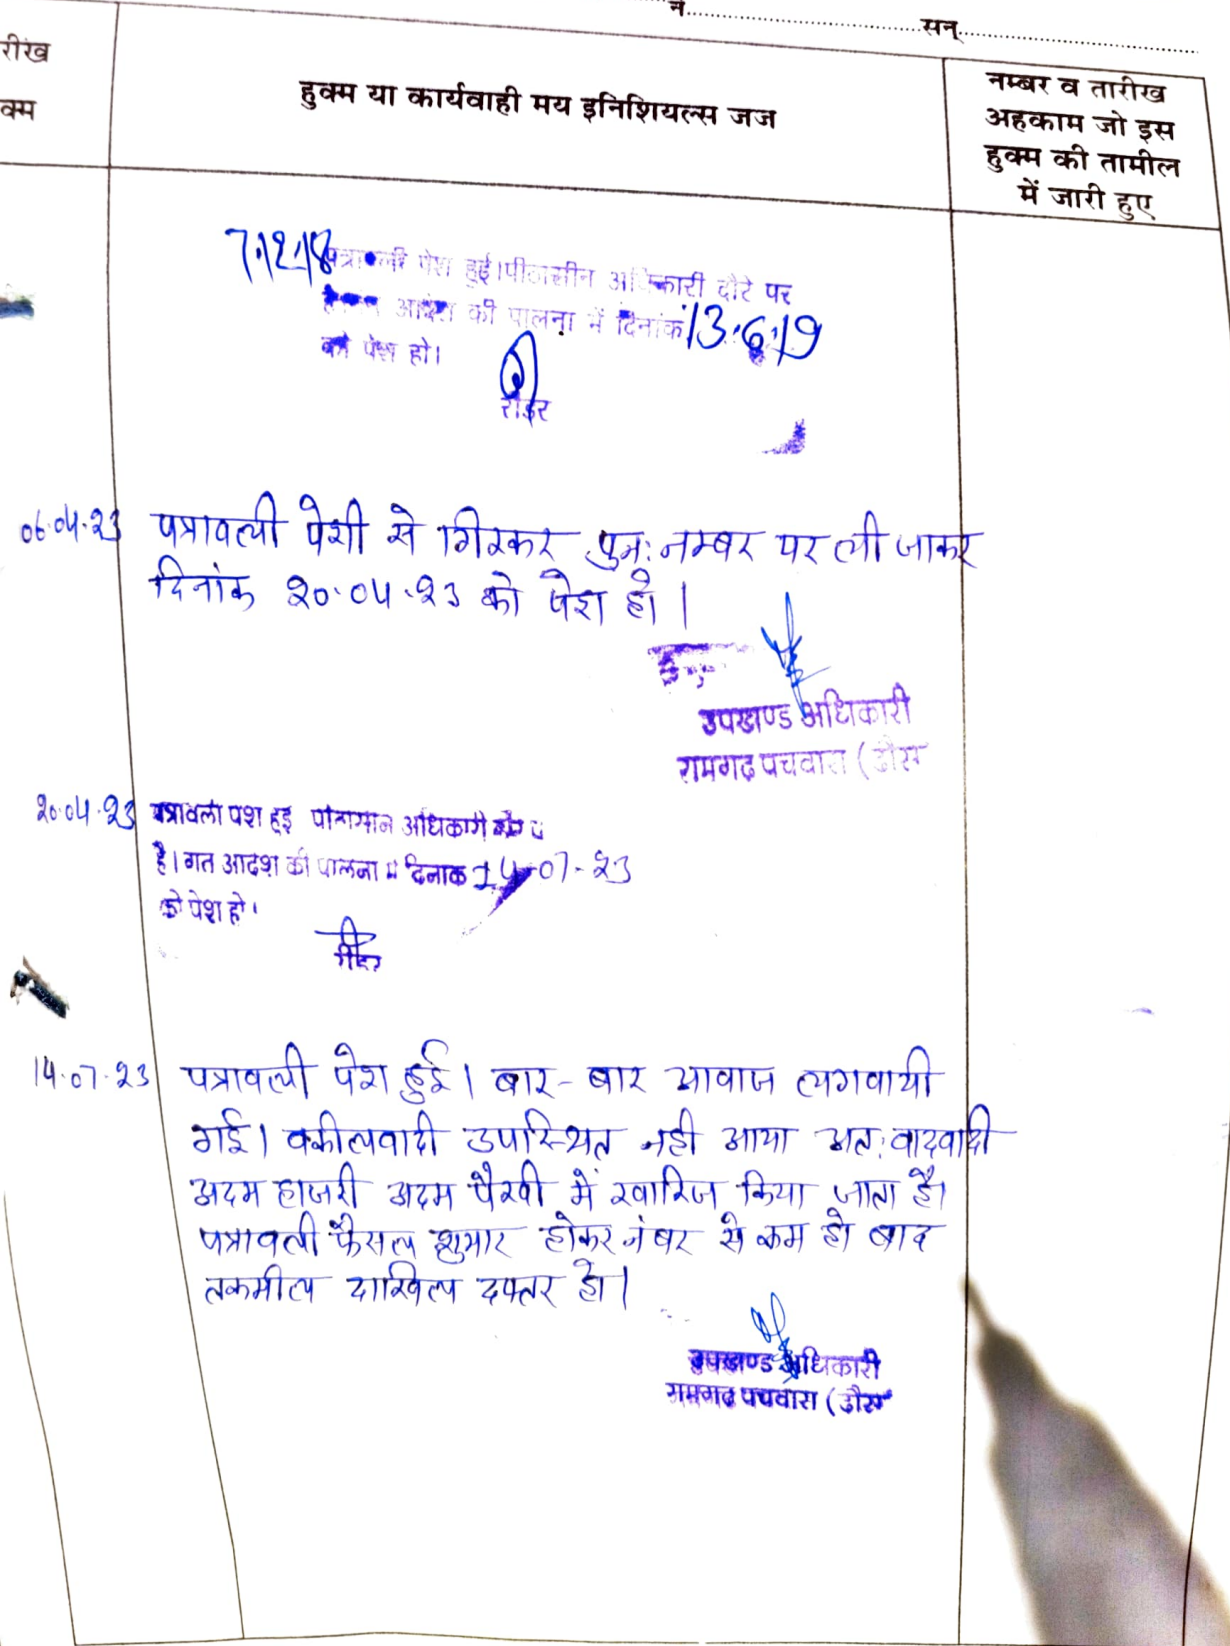 न.......................................सन्.......................................
रीख
क्म
हुक्म या कार्यवाही मय इनिशियल्स जज
नम्बर व तारीख
अहकाम जो इस
हुक्म की तामील
में जारी हुए
7.12.18 पत्रावली पेश हुई। पीठासीन अधिकारी दौरे पर
आदेश की पालना में दिनांक 13.6.19
को पेश हो।
रीडर
06.04.23 पत्रावली पेशी से गिरकर पुनः नम्बर पर ली जाकर
दिनांक 20.04.23 को पेश हो।
उपखण्ड अधिकारी
रामगढ पचवारा (दौस
20.04.23 पत्रावली पेश हुई पीठासीन अधिकारी
है। गत आदेश की पालना में दिनांक 14-07-23
को पेश हो।
रीडर
14.07.23 पत्रावली पेश हुई। बार-बार आवाज लगवायी
गई। वकीलवादी उपस्थित नही आया अतः वादवादी
अदम हाजरी अदम पैरवी में खारिज किया जाता है।
पत्रावली फैसल शुमार होकर नंबर से कम हो बाद
तकमील दाखिल दफ्तर हो।
उपखण्ड अधिकारी
रामगढ पचवारा (दौस